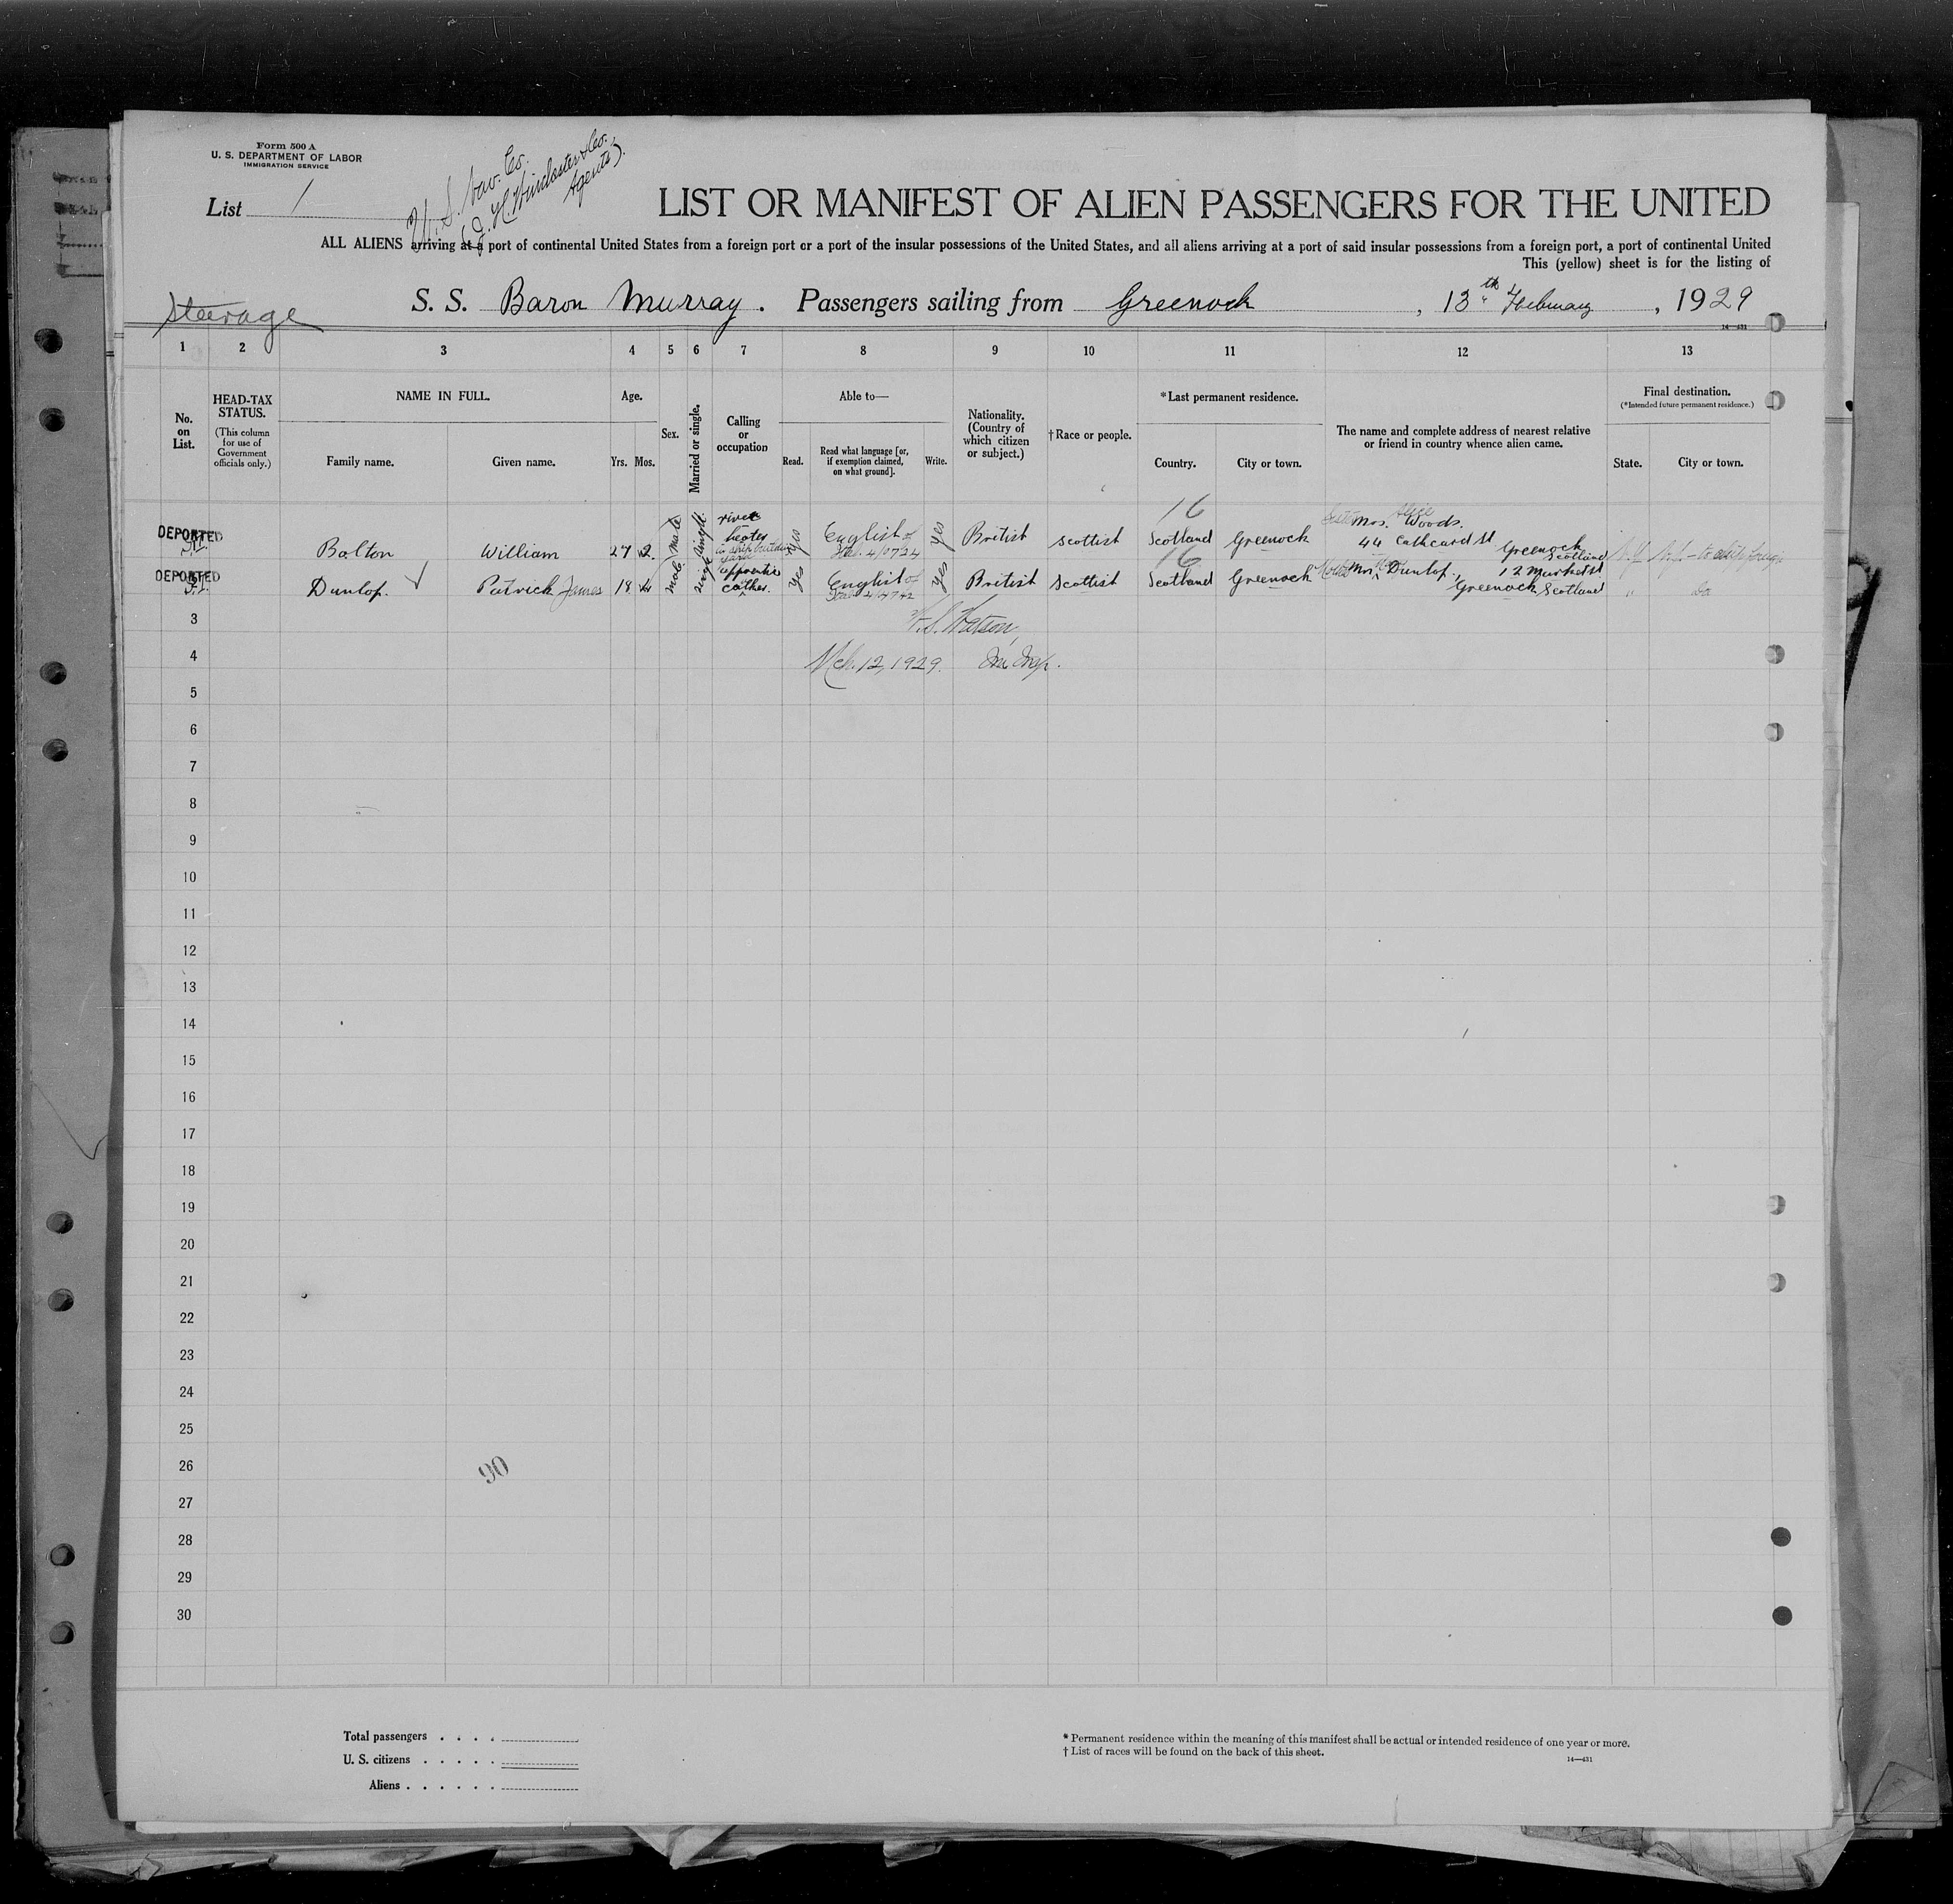 Form 500 A
U. S. DEPARTMENT OF LABOR
IMMIGRATION SERVICE
List 1
U. S. Nav. Co.
(J. H. Winchester & Co.
Agents).
LIST OR MANIFEST OF ALIEN PASSENGERS FOR THE UNITED
ALL ALIENS arriving at a port of continental United States from a foreign port or a port of the insular possessions of the United States, and all aliens arriving at a port of said insular possessions from a foreign port, a port of continental United
This (yellow) sheet is for the listing of
Steerage
S. S. Baron Murray. Passengers sailing from Greenock, 13th February, 1929
14—431
1 2 3 4 5 6 7 8 9 10 11 12 13
No. on List.
HEAD-TAX STATUS.
(This column for use of Government officials only.)
NAME IN FULL.
Family name. Given name.
Age.
Yrs. Mos.
Sex.
Married or single.
Calling or occupation
Able to—
Read. Read what language [or, if exemption claimed, on what ground]. Write.
Nationality. (Country of which citizen or subject.)
†Race or people.
*Last permanent residence.
Country. City or town.
The name and complete address of nearest relative or friend in country whence alien came.
Final destination.
(*Intended future permanent residence.)
State. City or town.
DEPORTED Bolton William 27 2 male single rivet heater in ship building yard yes English yes British Scottish 16 Scotland Greenock Mrs. Alice Woods. 44 Cathcard St Greenock Scotland
DEPORTED Dunlop. Patrick James 18 4 male single apprentice yes English yes British Scottish 16 Scotland Greenock Mrs. Dunlop., 12 Market St Greenock Scotland " do
3 W. S. Watson,
4 Mch. 12, 1929. Im. Insp.
5
6
7
8
9
10
11
12
13
14
15
16
17
18
19
20
21
22
23
24
25
26
90
27
28
29
30
Total passengers . . . .
U. S. citizens . . . . .
Aliens . . . . . .
* Permanent residence within the meaning of this manifest shall be actual or intended residence of one year or more.
† List of races will be found on the back of this sheet.
14—431